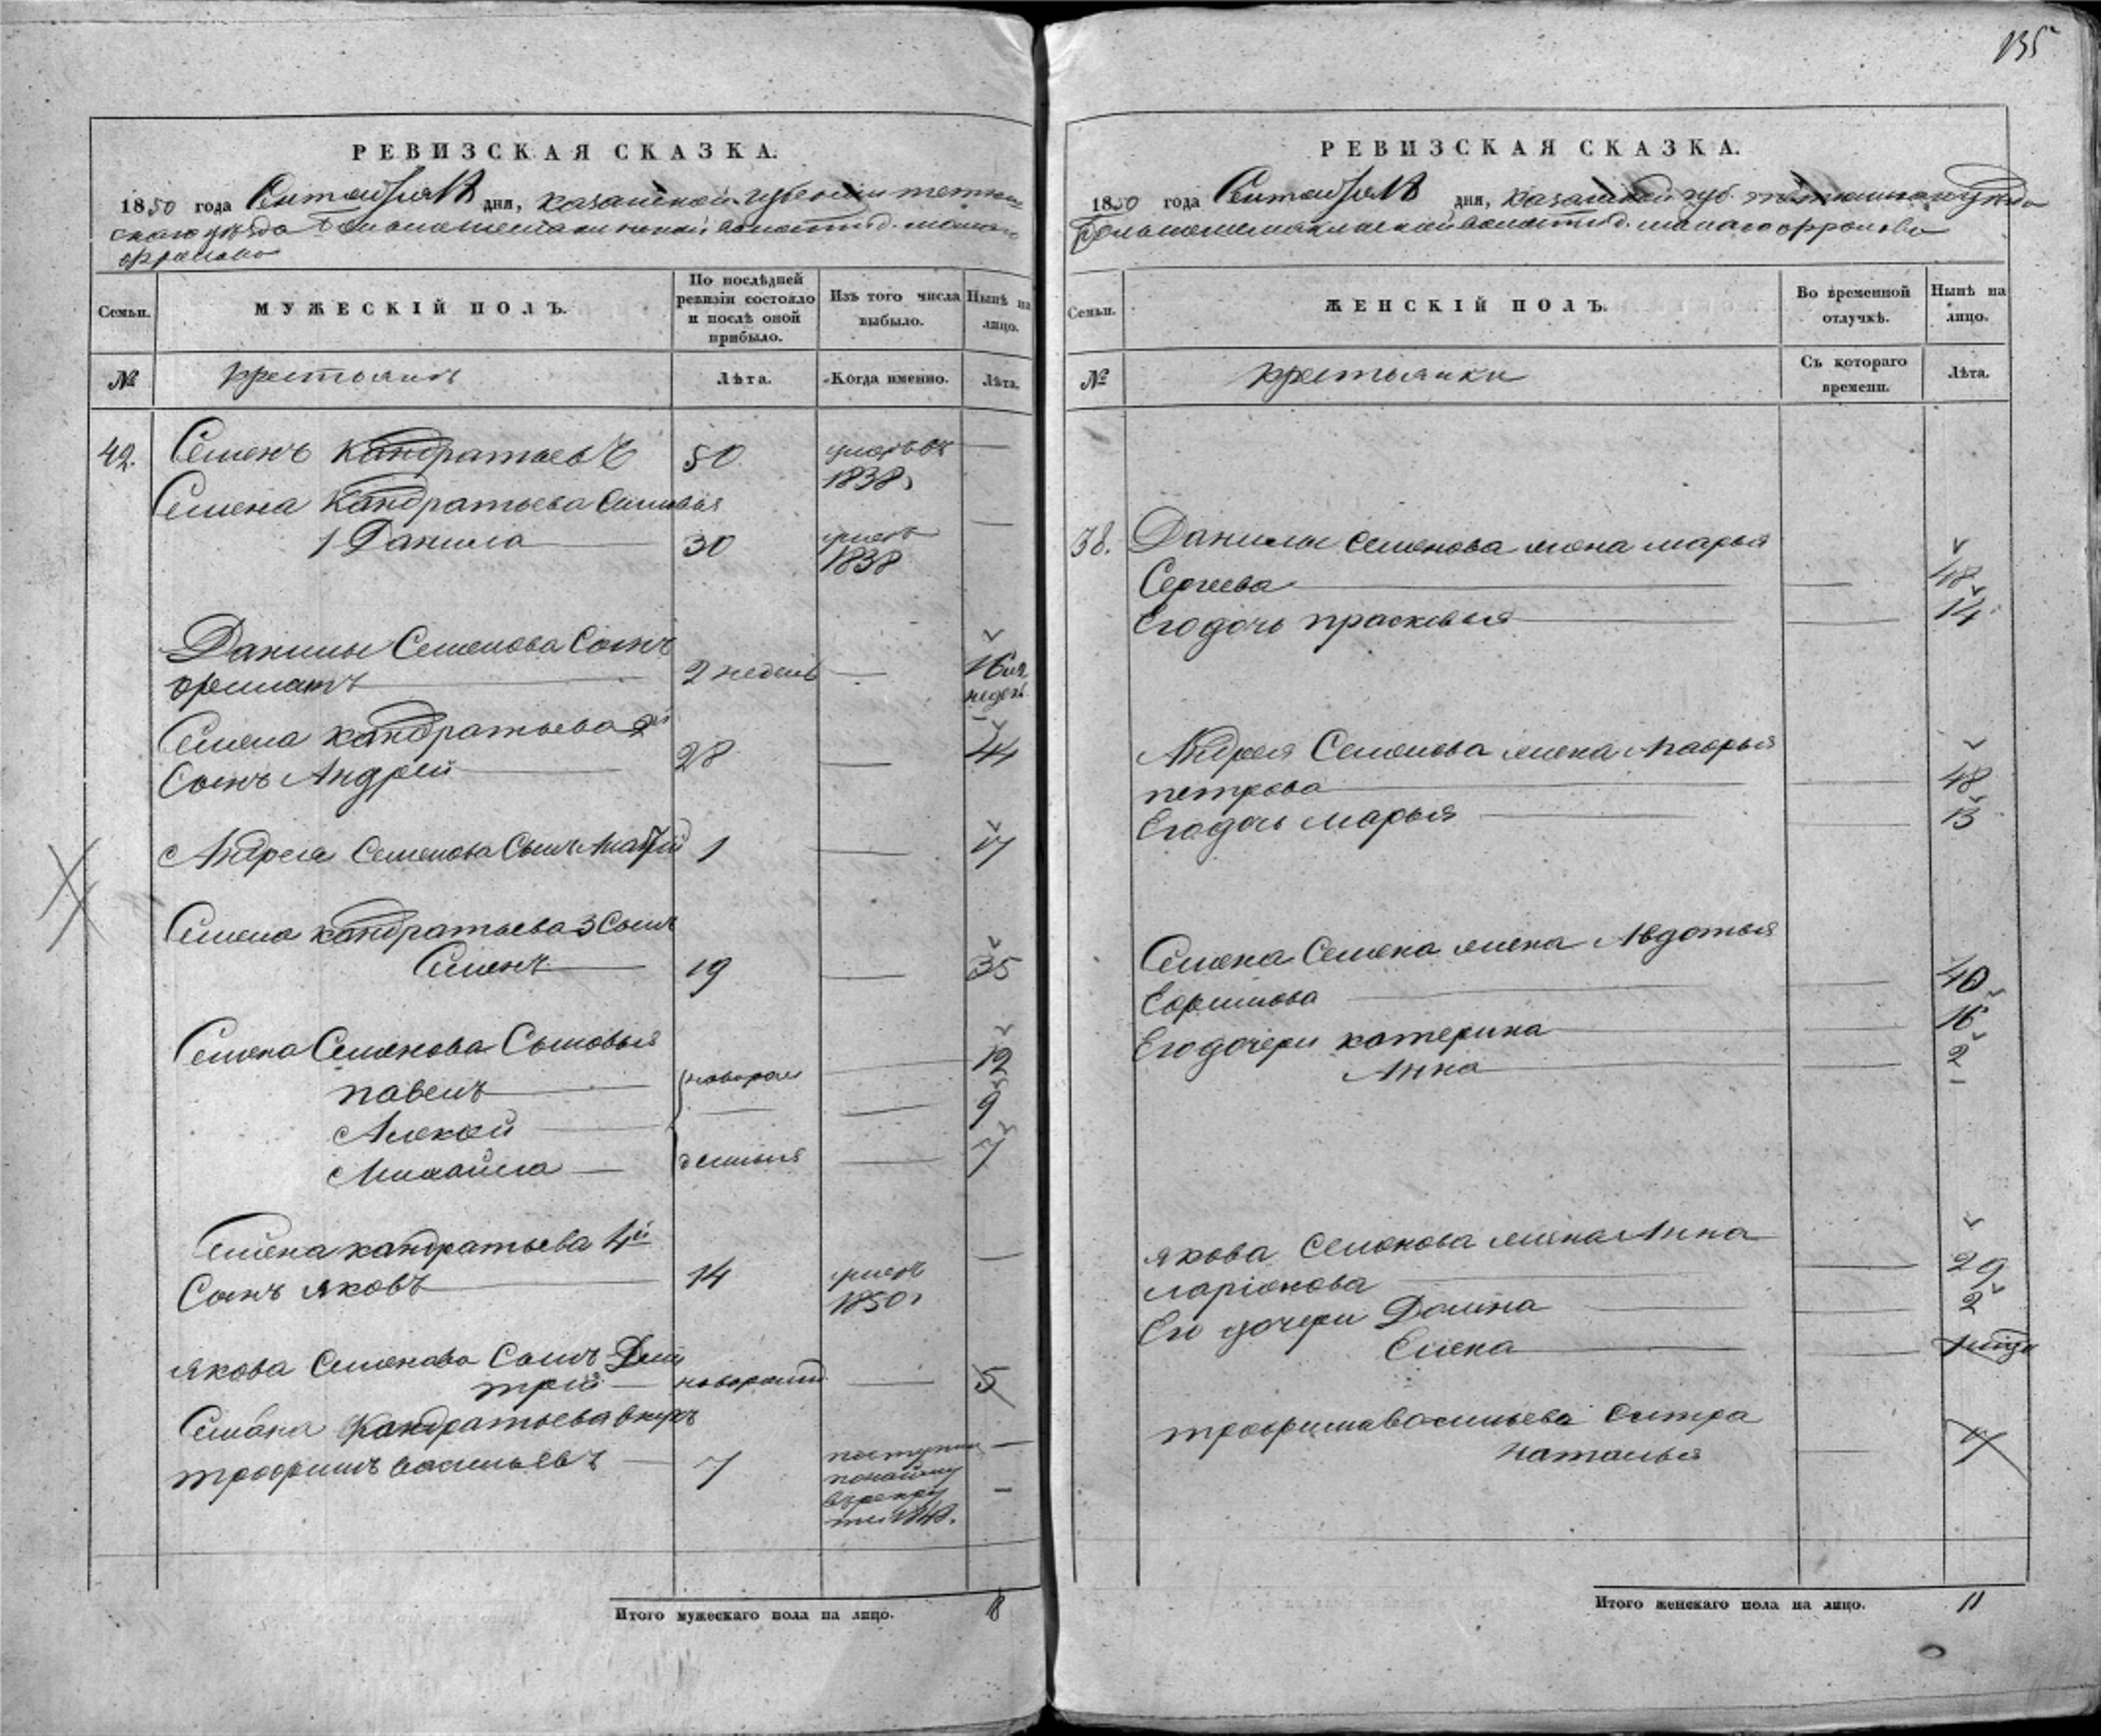 135
РЕВИЗСКАЯ СКАЗКА.
1850 года Сентября дня, казанской губернии тетюш
скаго уезда волости д. малаго
фролово
Семьи.
МУЖЕСКІЙ ПОЛЪ.
По послѣдней
ревизіи состояло
и послѣ оной
прибыло.
Изъ того числа
выбыло.
Нынѣ на
лицо.
№
крестьянъ
Лѣта.
Когда именно.
Лѣта.
42. Семенъ Кандратьевъ 50 умеръ въ —
1838
Семена Кандратьева Сыновья
1 Данила 30 умеръ —
1838
Данилы Семенова Сынъ
2 недель — 16 и 2
недель
Семена кандратьева 2й
Сынъ Андрей 28 — 44
Андрея Семенова Сынъ 1 — 17
Семена кандратьева 3 Сынъ
Семенъ 19 — 35
Семена Семенова Сыновья
павелъ новорож — 12
Алексей — — 9
Михайла денныя — 7
Семена кандратьева 4й
Сынъ яковъ 14 умеръ —
1850
якова Семенова Сынъ Дми
трей новорожд — 5
Семена Кандратьева внукъ
трофимъ васильевъ 7 поступил —
по найму
въ рекру
ты 184
Итого мужескаго пола на лицо. 8
РЕВИЗСКАЯ СКАЗКА.
1850 года Сентября дня, казанской губ. тетюшскаго уезда
волости д. малаго фролово
Семьи.
ЖЕНСКІЙ ПОЛЪ.
Во временной
отлучкѣ.
Нынѣ на
лицо.
№
крестьянки
Съ котораго
времени.
Лѣта.
38. Данилы Семенова жена марья
Сергеева — 48
Его дочь прасковья — 14
Андрея Семенова жена
петрова — 48
Его дочь марья — 13
Семена Семена жена Авдотья
Ефимова — 40
Его дочери катерина — 16
Анна — 2
якова Семенова жена Анна
ларіонова — 29
Его дочери Домна — 2
Елена —
трофима васильева Сестра
наталья — 17
Итого женскаго пола на лицо. 11